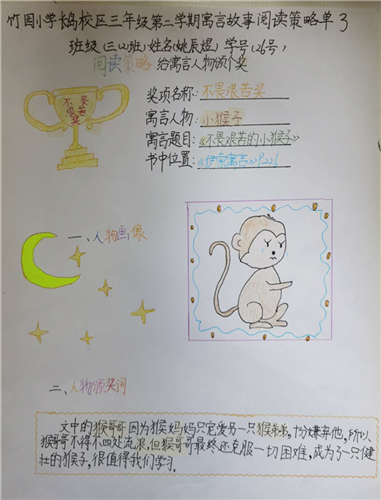 竹园小学长岛校区三年级第二学期寓言故事阅读策略单3
班级(三(2)班)姓名(姚辰煜)学号(26号)
阅读策略 给寓言人物颁个奖
不畏艰苦奖
奖项名称:不畏艰苦奖
寓言人物:小猴子
寓言题目:《不畏艰苦的小猴子》
书中位置:《伊索寓言》P226
一、人物画像
二、人物颁奖词
文中的猴哥哥因为猴妈妈只宠爱另一只猴弟弟,十分嫌弃他,所以
猴哥哥不得不四处流浪,但猴哥哥最终还克服一切困难,成为了一只健
壮的猴子,很值得我们学习。